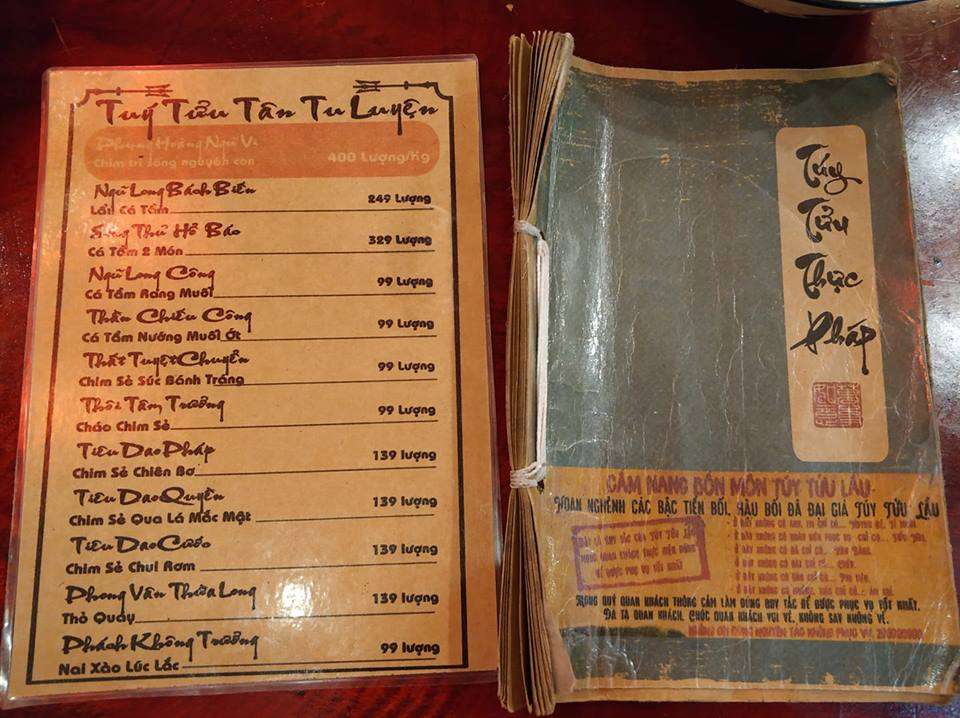 Tuý Tửu Tân Tu Luyện
Phụng Hoàng Ngũ Vị
Chim trĩ sống nguyên con 400 Lượng/Kg
Ngũ Long Bách Biến
Lẩu Cá Tầm 249 Lượng
Song Thủ Hồ Báo
Cá Tầm 2 Món 329 Lượng
Ngũ Long Công
Cá Tầm Rang Muối 99 Lượng
Thần Chiếu Công
Cá Tầm Nướng Muối Ớt 99 Lượng
Thất Tuyệt Chuyển
Chim Sẻ Súc Bánh Tráng 99 Lượng
Thôi Tâm Trưởng
Cháo Chim Sẻ 99 Lượng
Tiêu Dao Pháp
Chim Sẻ Chiên Bơ 139 lượng
Tiêu Dao Quyền
Chim Sẻ Qua Lá Mắc Mật 139 lượng
Tiêu Dao Cước
Chim Sẻ Chui Rơm 139 lượng
Phong Vân Thừa Long
Thỏ Quay 139 lượng
Phách Không Trưởng
Nai Xào Lúc Lắc 99 lượng
Túy
Tửu
Thực
Pháp
CẨM NANG BỔN MÔN TÚY TỬU LẦU
HOAN NGHÊNH CÁC BẬC TIỀN BỐI, HẬU BỐI ĐÃ ĐẠI GIÁ TÚY TỬU LẦU
MONG QUÝ QUAN KHÁCH THÔNG CẢM LÀM ĐÚNG QUY TẮC ĐỂ ĐƯỢC PHỤC VỤ TỐT NHẤT.
ĐA TẠ QUAN KHÁCH, CHÚC QUAN KHÁCH VUI VẺ, KHÔNG SAY KHÔNG VỀ.